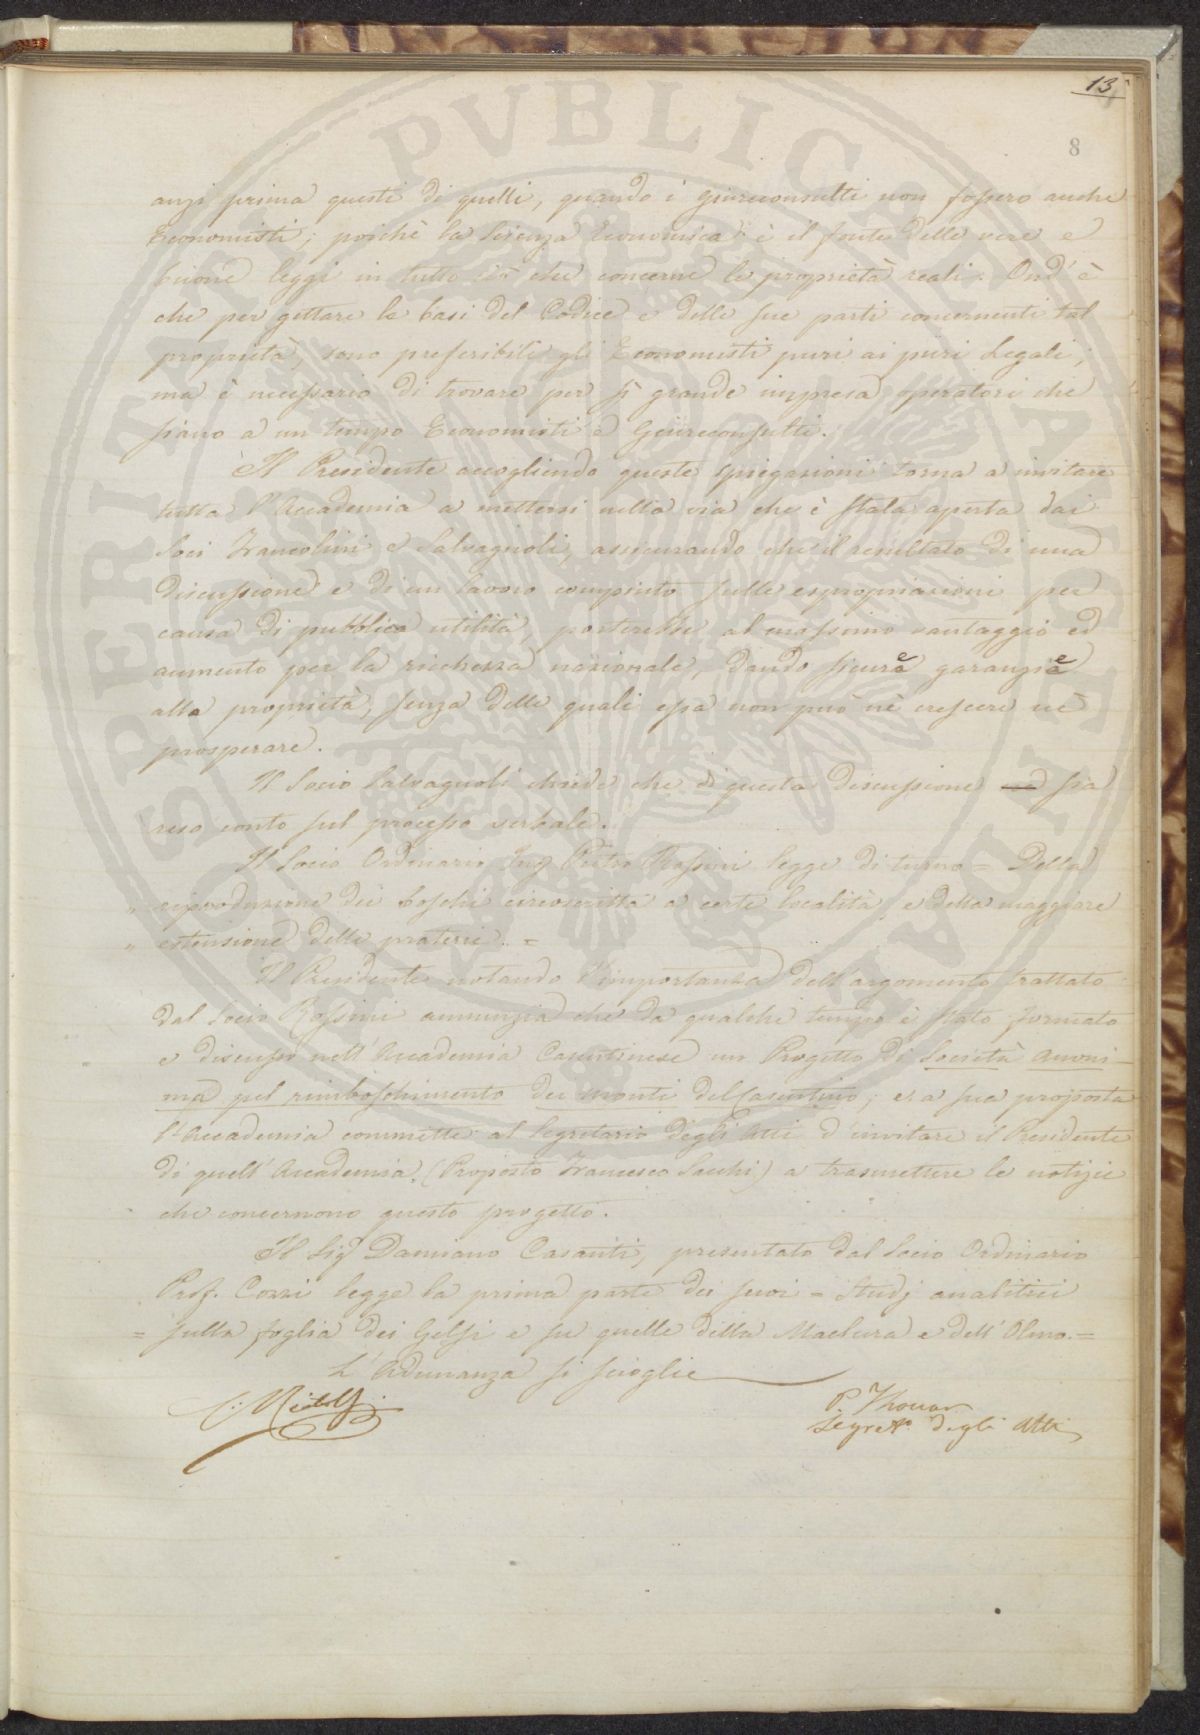 13
8
anzi prima questi di quelli, quando i Giureconsulti non fossero anche
Economisti; poichè la Scienza Economica è il fonte delle vere e
buone leggi in tutto ciò che concerne le proprietà reali. Ond'è
che per gettare le basi del Codice e delle sue parti concernenti tal
proprietà, sono preferibili gli Economisti puri ai puri Legali;
ma è necessario di trovare per sì grande impresa operatori che
siano a un tempo Economisti e Giureconsulti.
Il Presidente accogliendo queste spiegazioni torna a invitare
tutta l'Accademia a mettersi nella via che è stata aperta dai
Soci Francolini e Salvagnoli, assicurando che il resultato di una
discussione e di un lavoro compiuto sulle espropriazioni per
causa di pubblica utilità, porterebbe al massimo vantaggio ed
aumento per la ricchezza nazionale, dando sicure garanzie
alla proprietà, senza delle quali essa non può nè crescere nè
prosperare.
Il Socio Salvagnoli chiede che di questa discussione sia
reso conto sul processo verbale.
Il Socio Ordinario Ing. Pietro Rossini legge di turno = Della
" riproduzione dei boschi circoscritta a certe località, e della maggiore
" estensione delle praterie. =
Il Presidente notando l'importanza dell'argomento trattato
dal Socio Rossini annunzia che da qualche tempo è stato formato
e discusso nell'Accademia Casentinese un Progetto di Società Anoni-
ma pel rimboschimento dei monti del Casentino; e a sua proposta
l'Accademia commette al Segretario degli Atti d'invitare il Presidente
di quell'Accademia (Proposto Francesco Sacchi) a trasmettere le notizie
che concernono questo progetto.
Il Sig. Damiano Casanti, presentato dal Socio Ordinario
Prof. Cozzi legge la prima parte dei suoi = Studj analitici
= sulla foglia dei Gelsi e su quelle della Maclura e dell'Olmo. =
L'Adunanza si scioglie
C. Ridolfi
P. Thouar
Segret.o degli Atti
PVBLICAE
PROSPERITATI